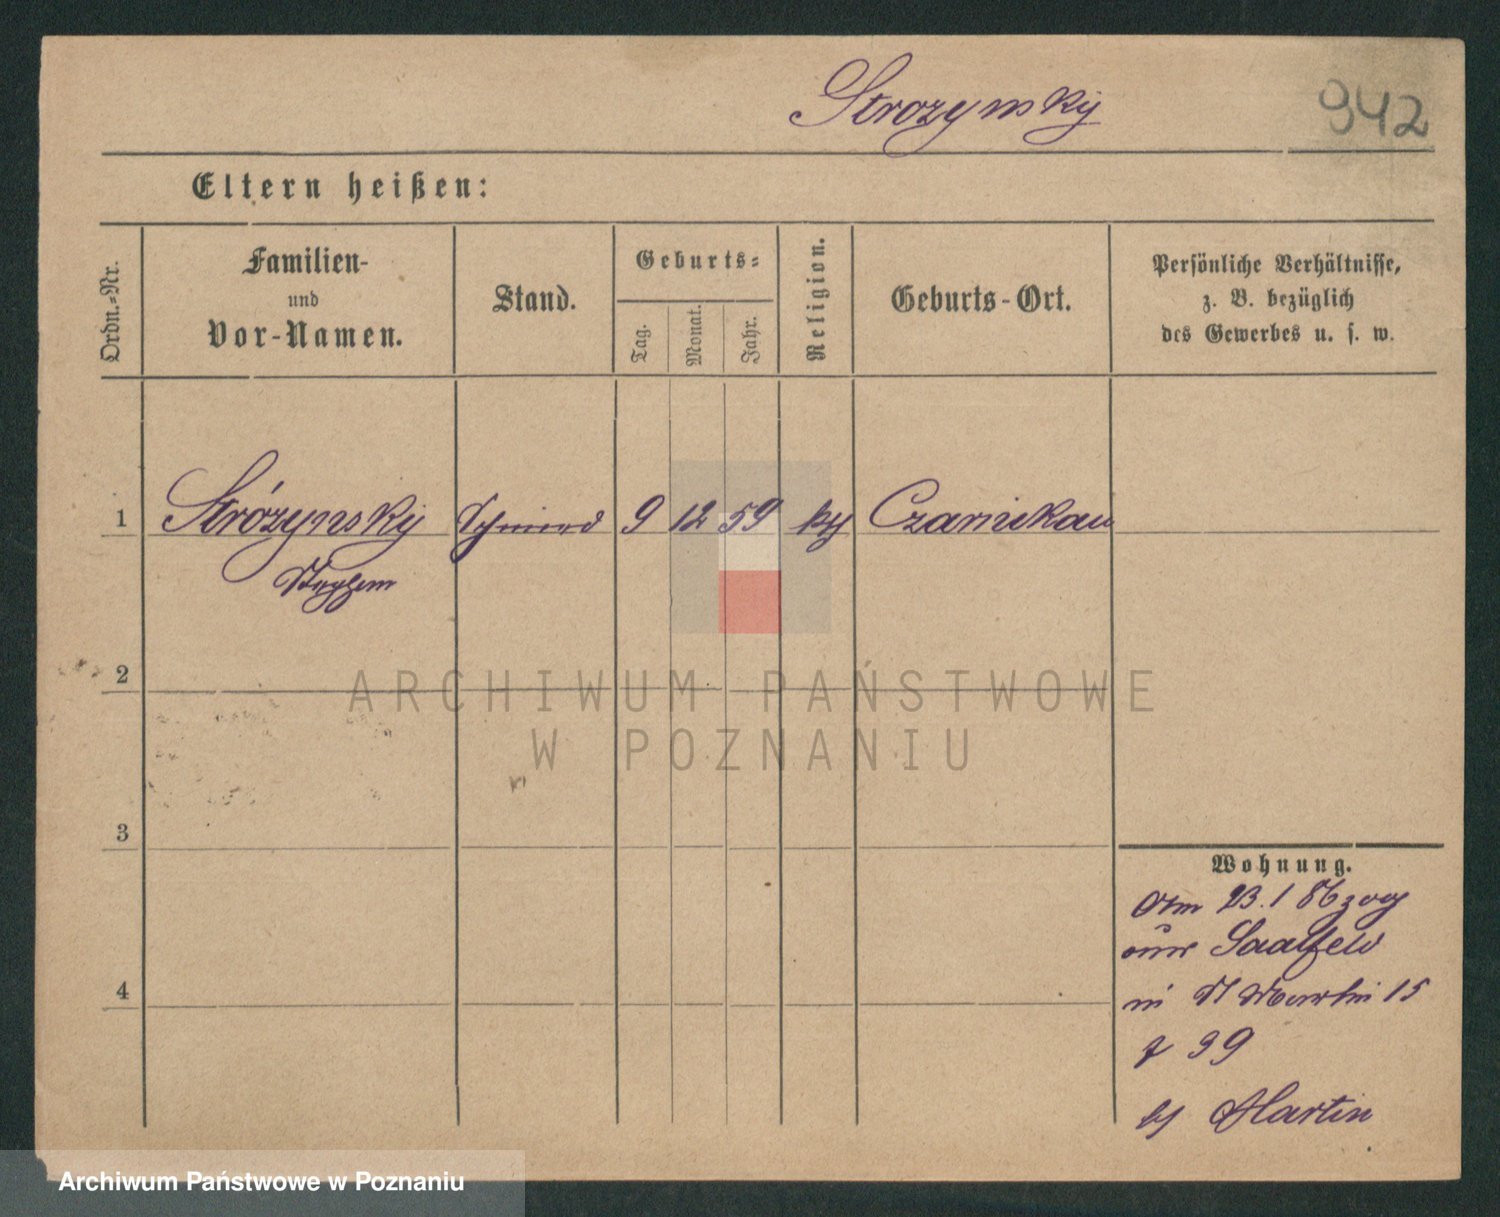 Strozynsky
942
Eltern heißen:
Ordn.-Nr.
Familien-
und
Vor-Namen.
Stand.
Geburts-
Tag.
Monat.
Jahr.
Religion.
Geburts-Ort.
Persönliche Verhältnisse,
z. B. bezüglich
des Gewerbes u. s. w.
1
Strózynsky
Schmied
9
12
59
kth
Czarnikau
Stephan
2
ARCHIWUM PAŃSTWOWE
W POZNANIU
3
Wohnung.
Am 23.1 86 zog
aus Saalfeld
in St Martin 15
z 39
bei Martin
4
Archiwum Państwowe w Poznaniu